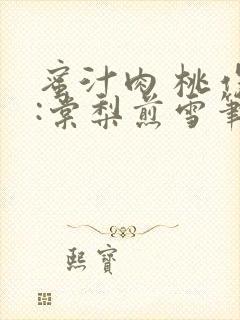 蜜汁肉桃
:棠梨煎雪筆
熙寶